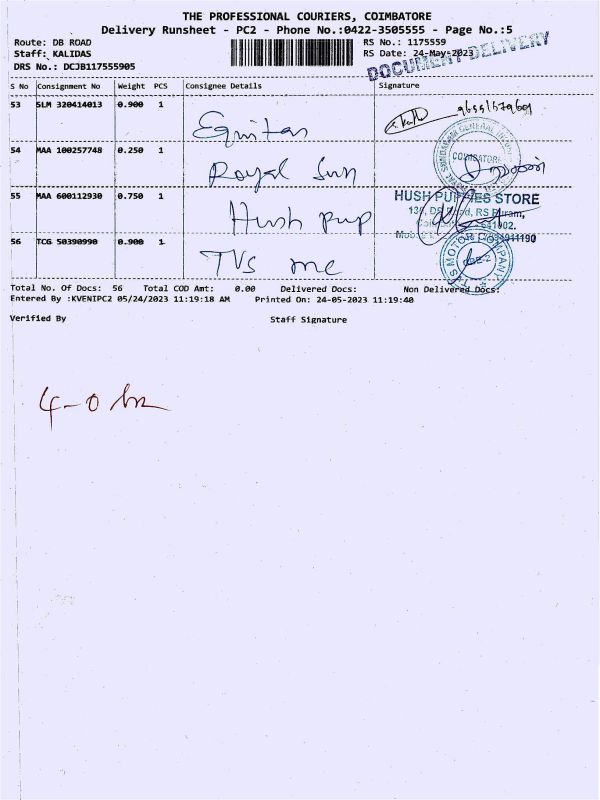 THE PROFESSIONAL COURIERS, COIMBATORE
Delivery Runsheet - PC2 - Phone No.:0422-3505555 - Page No.:5
Route: DB ROAD RS No.: 1175559
Staff: KALIDAS RS Date: 24-May-2023
DRS No.: DCJB117555905 DOCUMENT DELIVERY
S No Consignment No Weight PCS Consignee Details Signature
53 SLM 320414013 0.900 1 Equitas
54 MAA 100257748 0.250 1 Royal Sun COIMBATORE
55 MAA 600112930 0.750 1 Hush pup HUSH PUPPIES STORE
56 TCG 50390990 0.900 1 TVS mc
Total No. Of Docs: 56 Total COD Amt: 0.00 Delivered Docs: Non Delivered Docs:
Entered By :KVENIPC2 05/24/2023 11:19:18 AM Printed On: 24-05-2023 11:19:40
Verified By Staff Signature